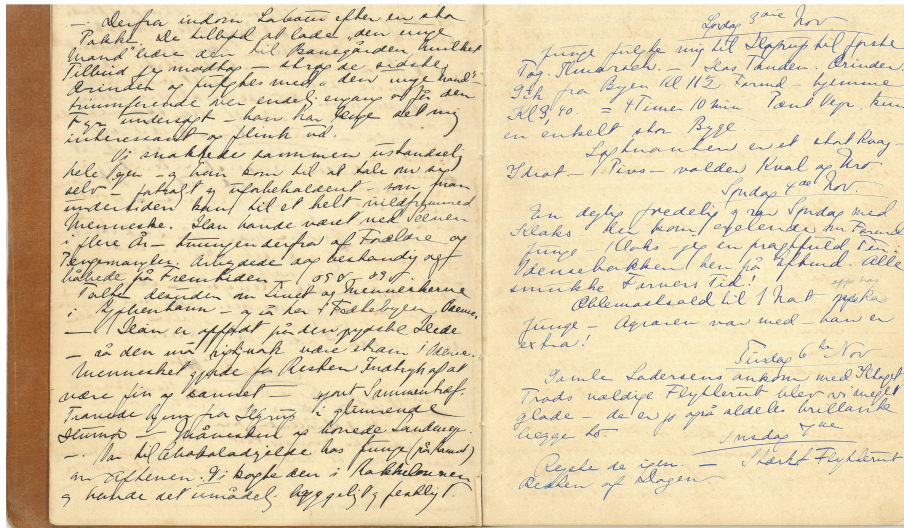 — Derfra indom Labani efter en stor
Pakke. De tilbød at lade "den unge
Mand" bære den til Banegården hvilket
Tilbud jeg modtog — strøg de sidste
Ærinder og fulgtes med "den unge Mand"
triumferende over endelig engang at få den
Fyr undersøgt — han har længe set mig
interessant og flink ud.
Vi snakkede sammen ustandselig
hele Vejen — og han kom til at tale om sig
selv — fortroligt og uforbeholdent — som man
undertiden kan til et helt vildfremmed
Menneske. Han havde været ved Scenen
i flere År — tvungen derfra af Forældre og
Pengemangler. Arbejdede sig bestandig og
håbede på Fremtiden o.s.v. — o.s.v.
Talte desuden om Livet og Menneskerne
i Kjøbenhavn — og så her i Fødebyen Odense
— Han er opfødt på den jydske Hede
— så den må nok være stram i Odense.
Mennesket gjorde for Resten Indtryk af at
være fin og dannet — sjovt Sammentræf.
Travede hjem fra Højrup i glimrende
Humør — Måneskin og hvide Landeveje.
— Var til Chokoladegilde hos Junge
om Aftenen. Vi kogte den i Kakkelovnen
og havde det umådelig hyggeligt og festligt.
Lørdag 3die Nov
Junge fulgte mig til Højrup til første
Tog. Hos Tanden. Ærinder.
Gik fra Byen Kl 11½ Formd — hjemme
Kl 3,40 = 4 Timer 10 min. Pænt Vejr, kun
en enkelt stor Byge.
er et stort Kvaj —
Idiot — volder Kval og Uro
Søndag 4de Nov.
En dejlig fredelig og rar Søndag med
Klaks der kom cyclende om Formd
Junge, Klaks — jeg en pragtfuld Tur
Odensebakken hen på Efterm. Alle
smukke Farvers Tid!
Æblemostkold til Nat
Junge — Agraren var med — han er
extra!
Tirsdag 6te Nov
Gamle Ladersens ankom med Toget
Trods vældige Flytterit blev vi meget
glade — de er jo også aldeles brillante
begge to.
Onsdag 7de
Rejste de igen. — Stærkt Flytterit
Resten af Dagen